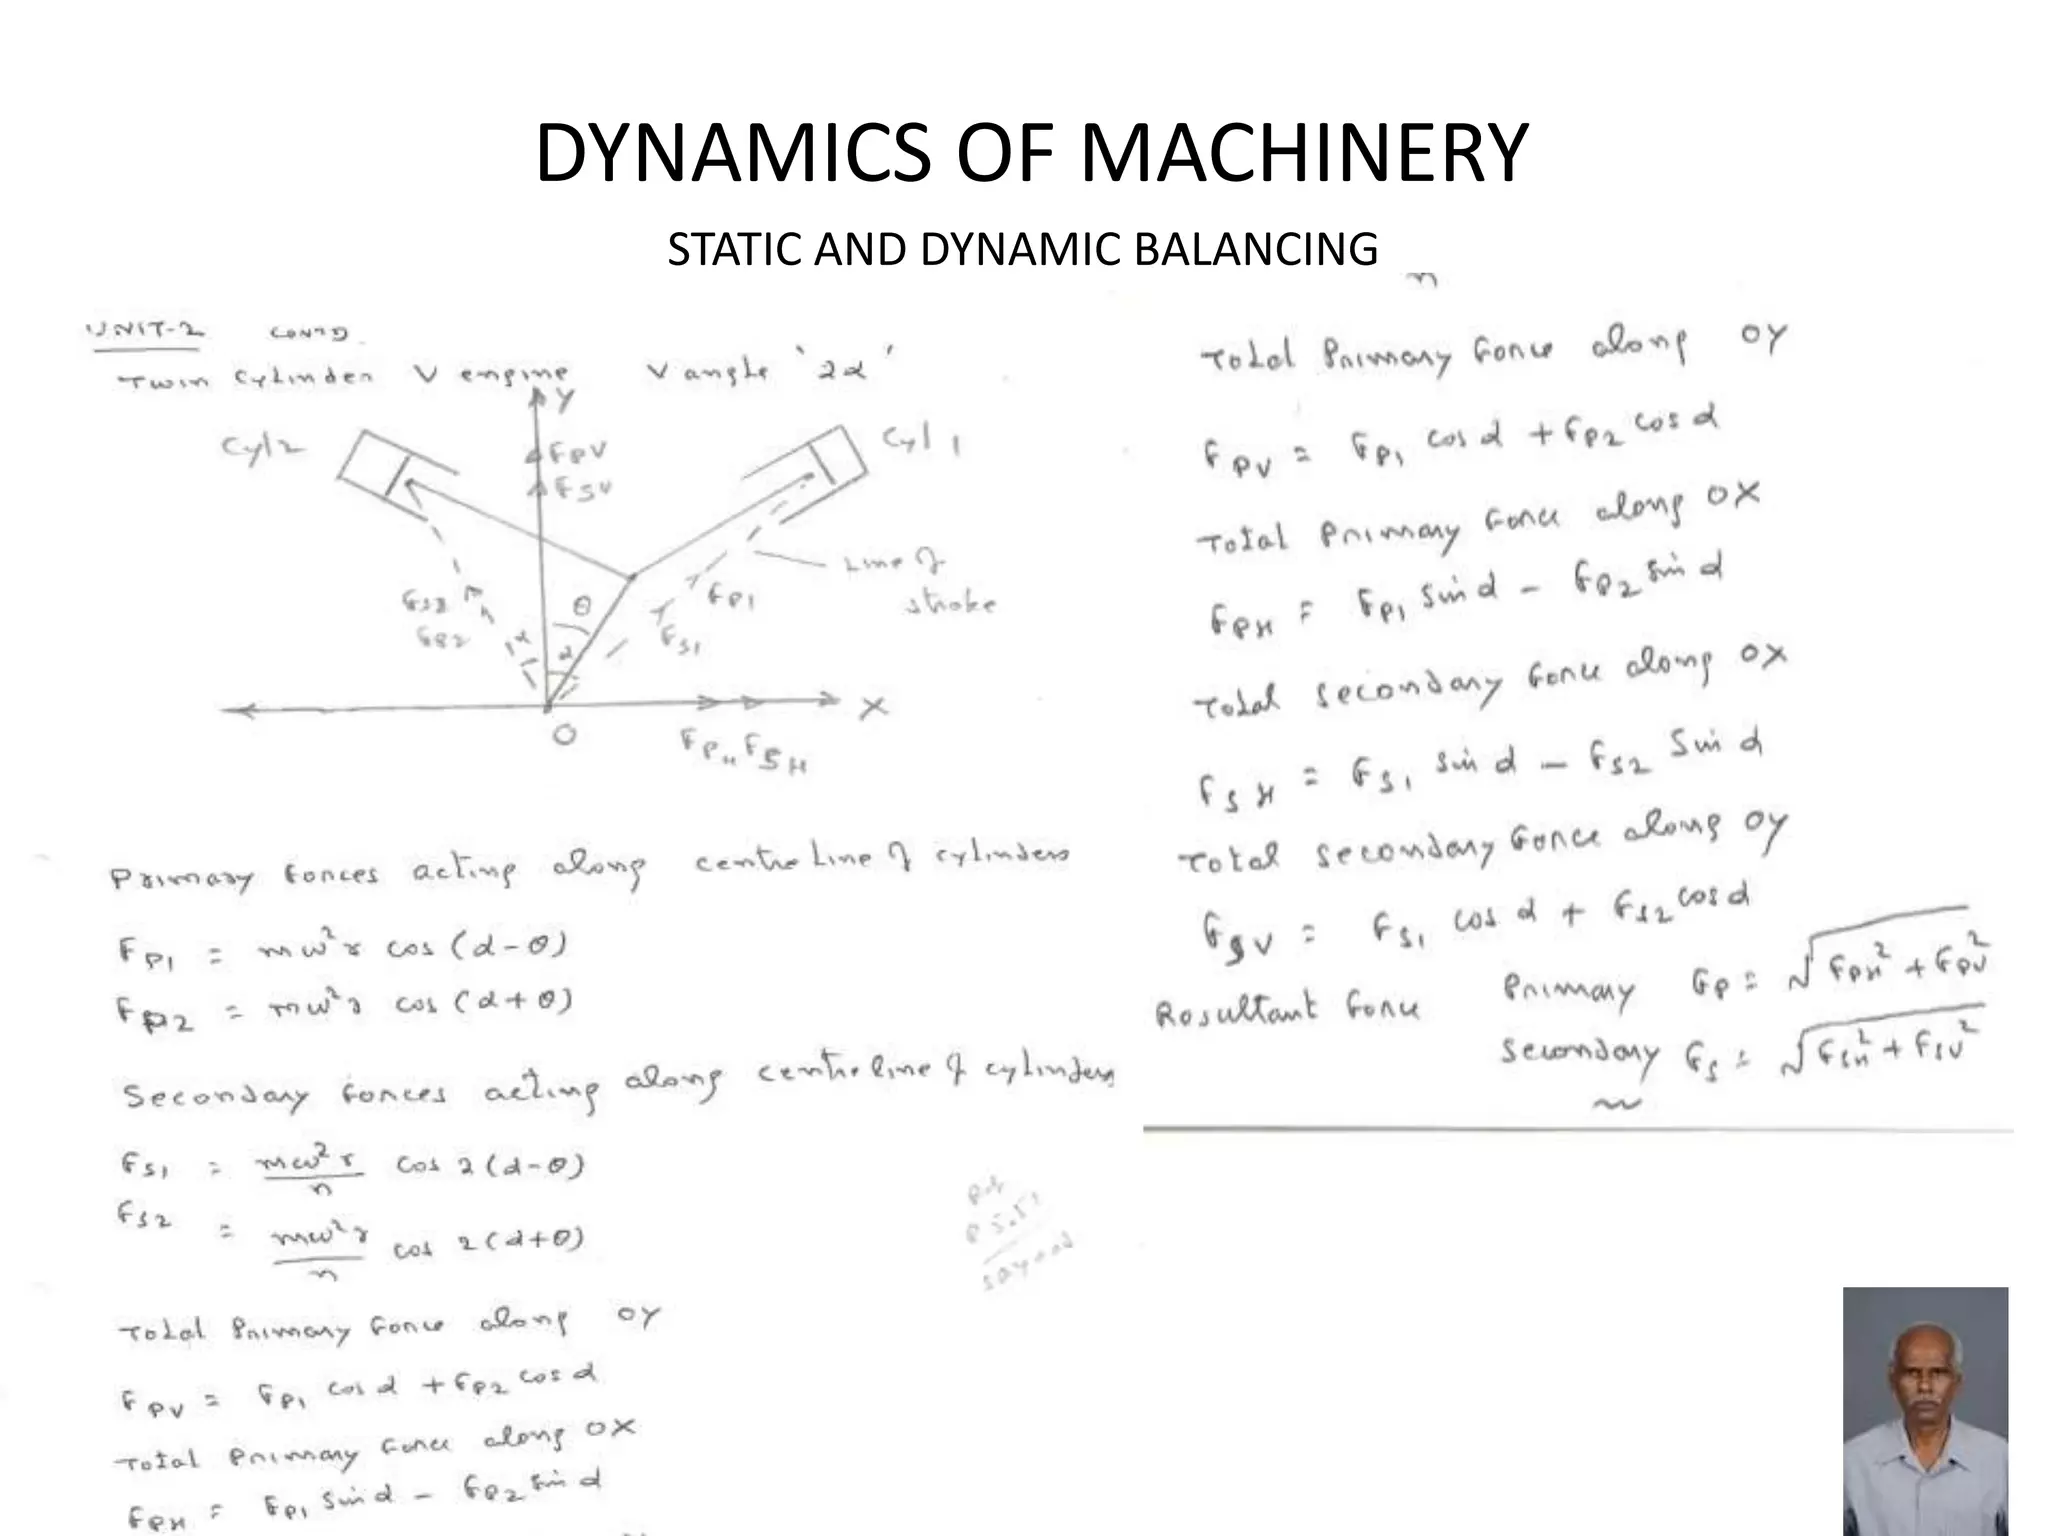 DYNAMICS OF MACHINERY
STATIC AND DYNAMIC BALANCING
UNIT-2 CONTD.
Twin Cylinder V engine V angle '2α'
Y
Cyl 2
Cyl 1
FPV
FSV
Line of
stroke
θ
FP1
FS1
FS2
FP2
α
α
O
X
FPH FSH
Primary forces acting along centre line of cylinders
FP1 = mω²r cos (α-θ)
FP2 = mω²r cos (α+θ)
Secondary forces acting along centre line of cylinders
FS1 = mω²r/n cos 2(α-θ)
FS2 = mω²r/n cos 2(α+θ)
Total Primary Force along OY
FPV = FP1 cos α + FP2 cos α
Total Primary Force along OX
FPH = FP1 sin α - FP2 sin α
n
Total Primary Force along OY
FPV = FP1 cos α + FP2 cos α
Total Primary Force along OX
FPH = FP1 sin α - FP2 sin α
Total Secondary Force along OX
FSH = FS1 sin α - FS2 sin α
Total Secondary Force along OY
FSV = FS1 cos α + FS2 cos α
Resultant Force Primary FP = √FPH² + FPV²
Secondary FS = √FSH² + FSV²